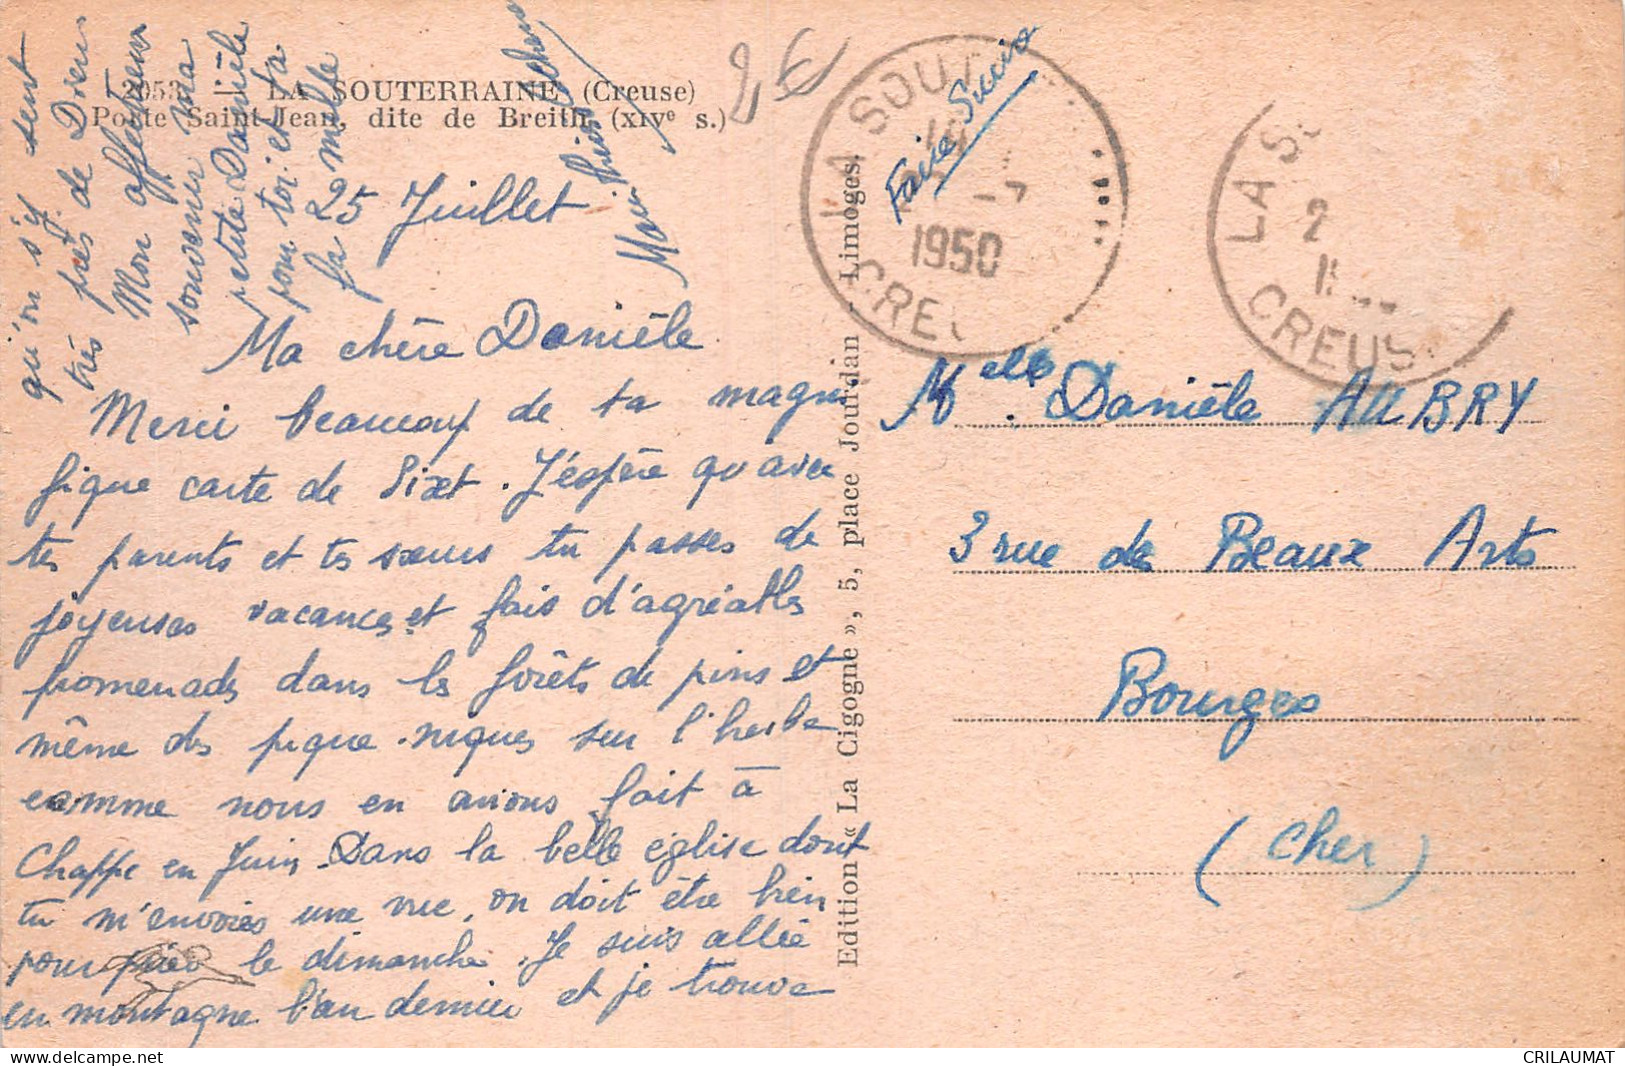 2053. — LA SOUTERRAINE (Creuse)
Porte Saint-Jean, dite de Breith (XIVe s.)
2€
25 Juillet
Ma chère Danièle
Merci beaucoup de ta magni
fique carte de Sixt. J'espère qu'avec
tes parents et tes sœurs tu passes de
joyeuses vacances et fais d'agréables
promenades dans les forêts de pins et
même des pique-niques sur l'herbe
comme nous en avions fait à
Chappe en Juin. Dans la belle église dont
tu m'envoies une vue, on doit être bien
pour prier le dimanche. Je suis allée
en montagne l'an dernier et je trouve
qu'on s'y sent
très près de Dieu
Mon affectueux
souvenir ma
petite Danièle
pour toi et ta
famille
Edition « La Cigogne », 5, place Jourdan - Limoges.
LA SOUT
1950
CREU
Faire Suivre
LA S
2
CREUS
Melle. Danièle AUBRY
3 rue des Beaux Arts
Bourges
(Cher)
CRILAUMAT